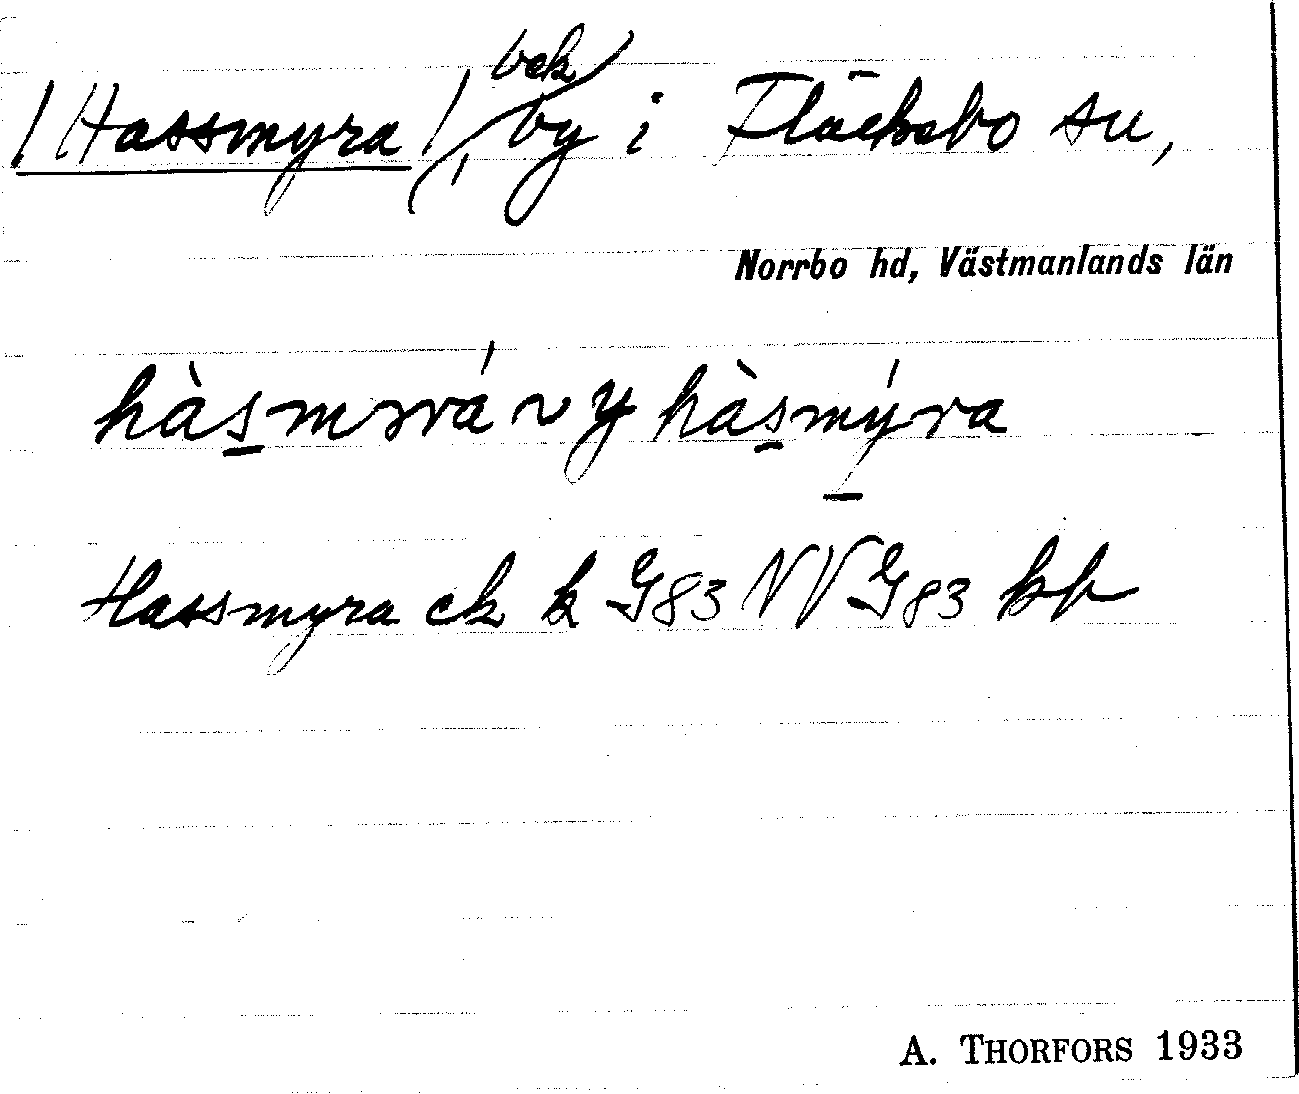 /Hassmyra/, bek by i Fläckebo sn,
Norrbo hd, Västmanlands län
hàsmrá hàsmýra
Hassmyra ek k G83 NV G83
A. THORFORS 1933